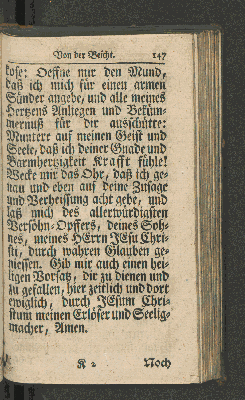 Von der Beicht. 147
kose: Oeffne mir den Mund,
daß ich mich für einen armen
Sünder angebe, und alle meines
Hertzens Anliegen und Beküm-
mernuß für dir ausschütte:
Muntere auf meinen Geist und
Seele, daß ich deiner Gnade und
Barmhertzigkeit Krafft fühle!
Wecke mir das Ohr, daß ich ge-
nau und eben auf deine Zusage
und Verheissung acht gebe, und
laß mich des allerwürdigsten
Versöhn-Opffers, deines Soh-
nes, meines HErrn JEsu Chri-
sti, durch wahren Glauben ge-
niessen. Gib mir auch einen hei-
ligen Vorsatz, dir zu dienen und
zu gefallen, hier zeitlich und dort
ewiglich, durch JEsum Chri-
stum meinen Erlöser und Seelig-
macher, Amen.
K 2 Noch